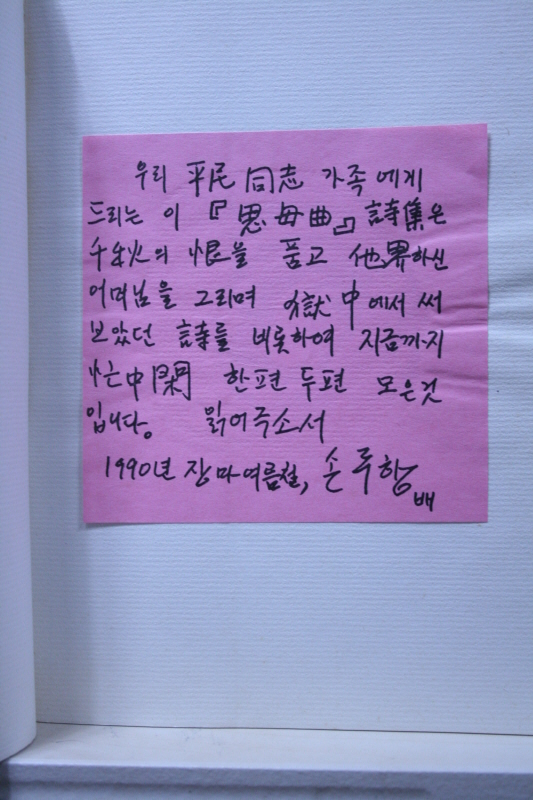 우리 平民 同志 가족에게
드리는 이 『思母曲』 詩集은
千秋의 恨을 품고 他界하신
어머님을 그리며 獄中에서 써
보았던 詩를 비롯하여 지금까지
忙中閑 한편 두편 모은것
입니다. 읽어주소서
1990년 장마여름철, 손주항
배